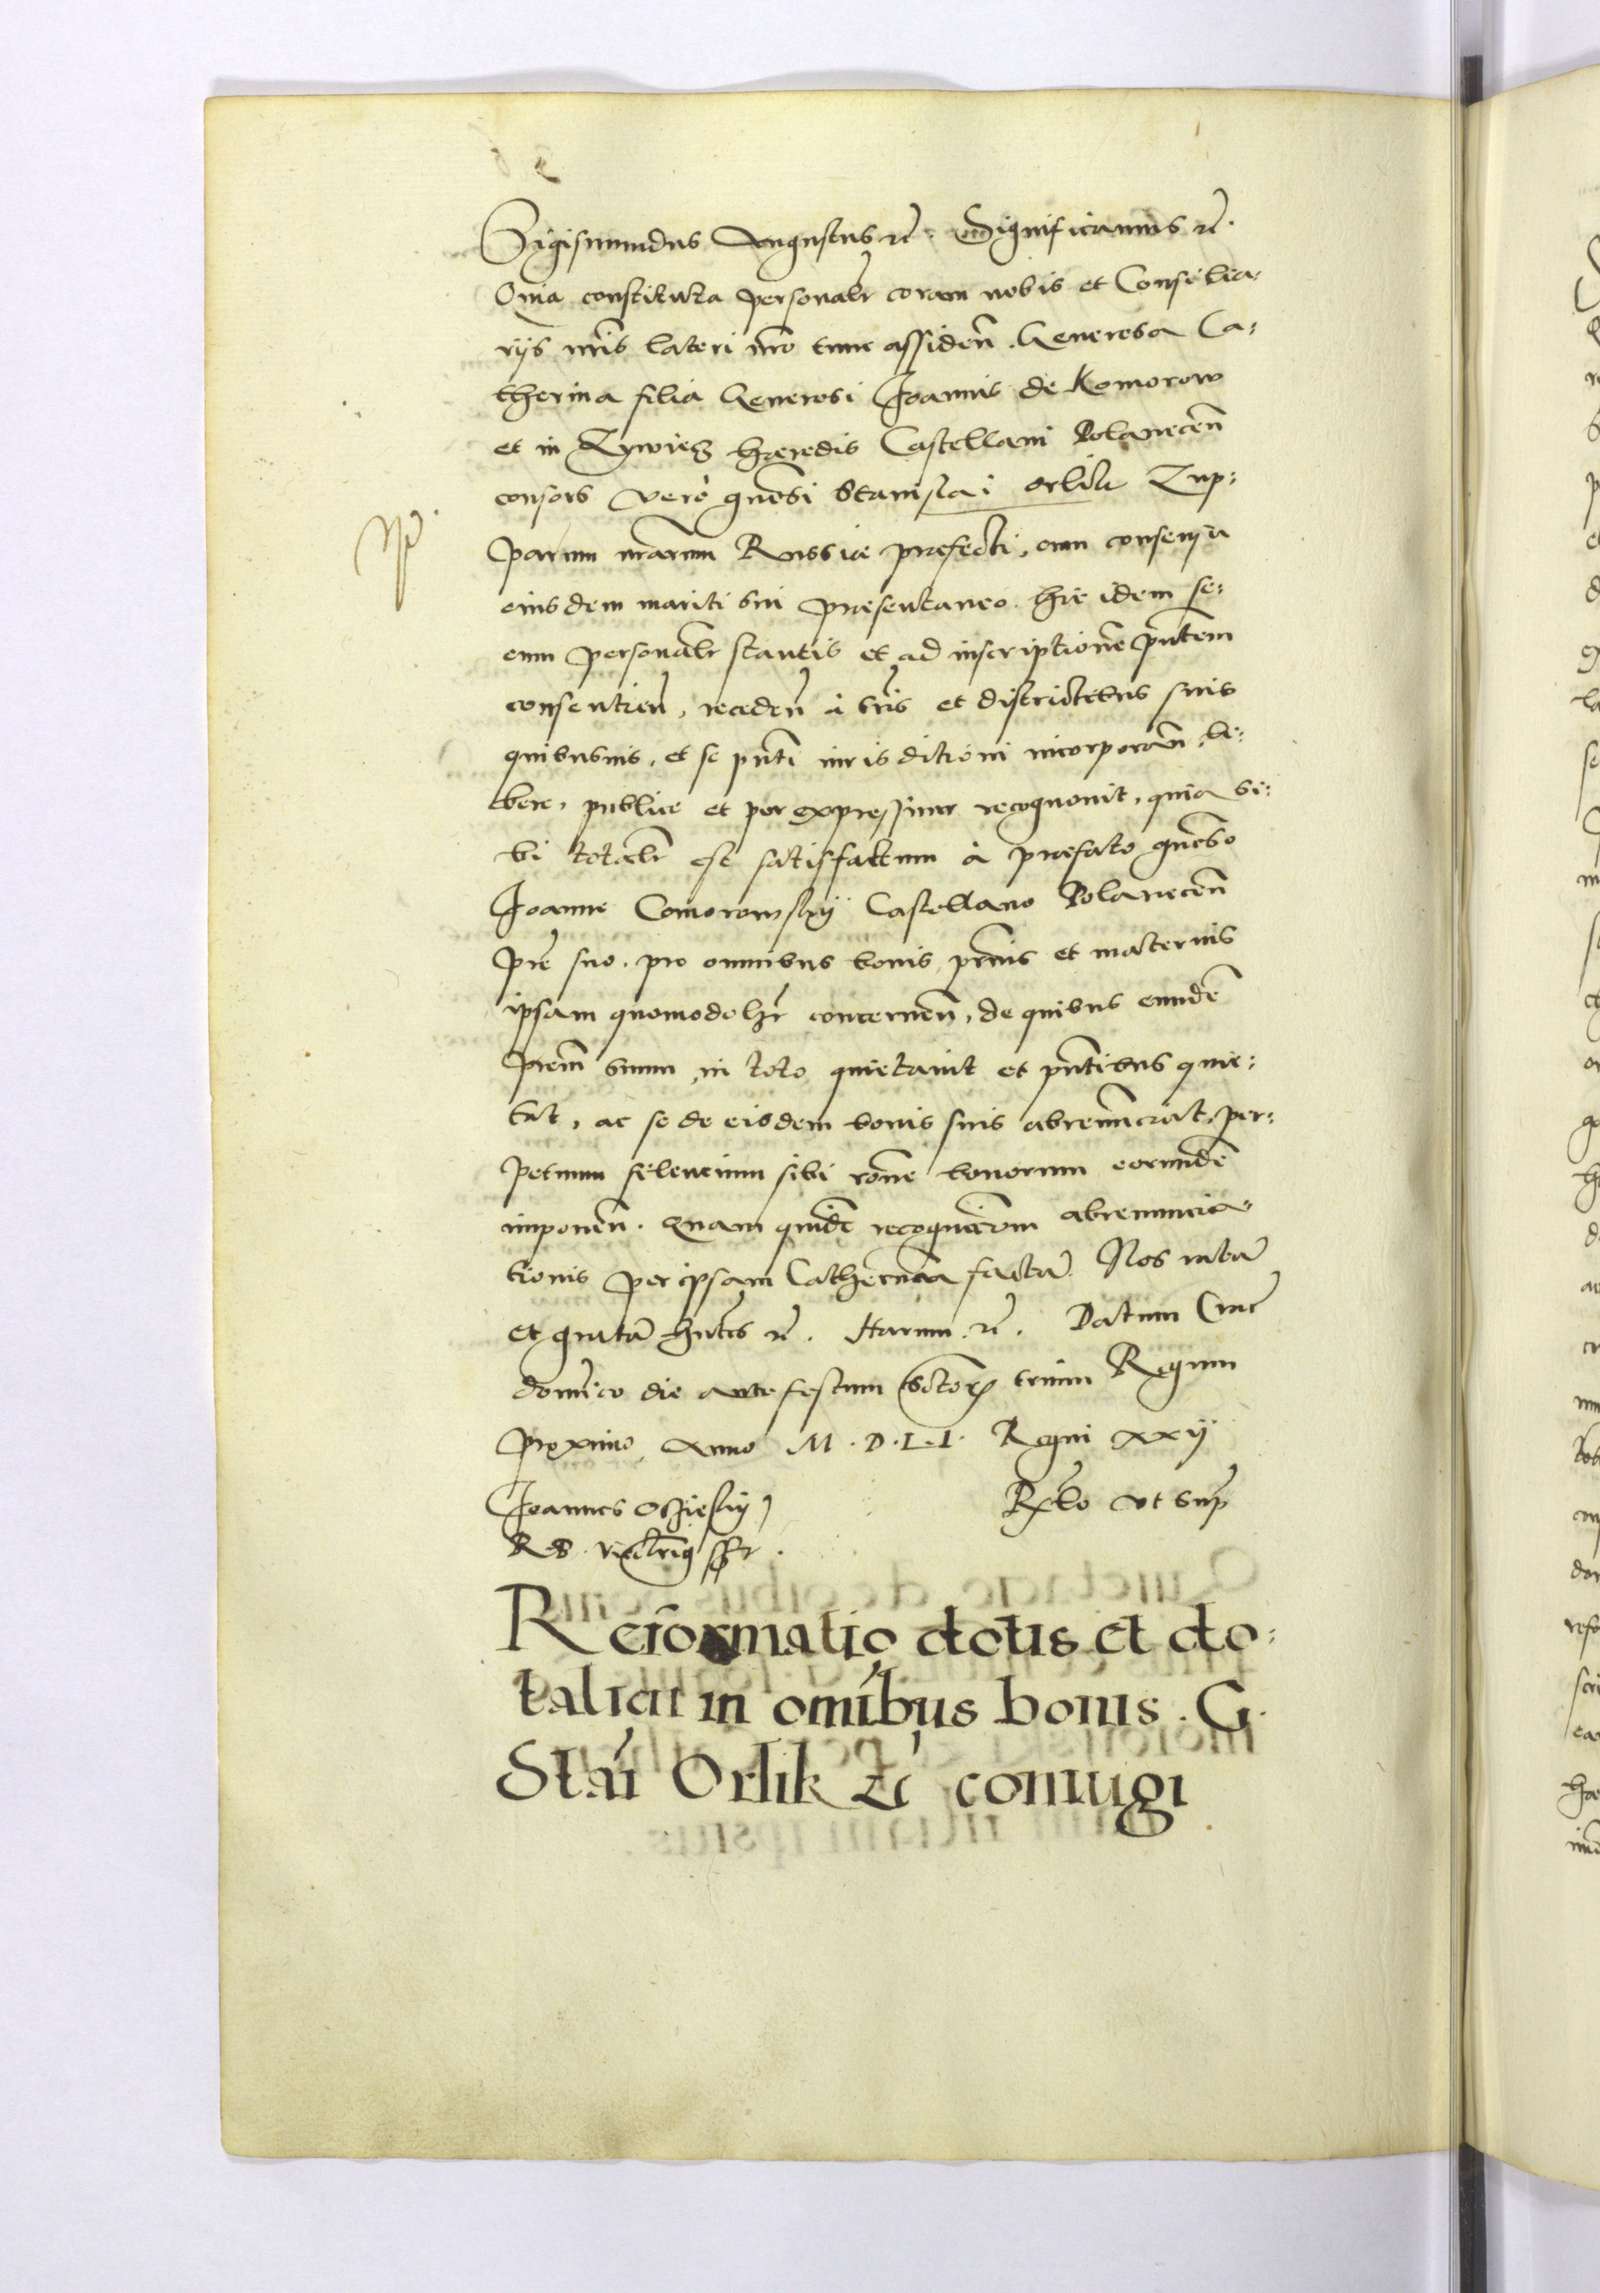 Sigismundus Augustus rc. Significamus rc.
Quia constituta personalr coram nobis et Consilia=
rijs nris lateri nro tunc assiden. Generosa Ca=
therina filia Generosi Joannis de Komorow
et in Zywiecz hæredis Castellani Polanecen
consors vero gnosi Stanislai Orlik Zup=
parum nrarum Russiæ præfecti, cum consensu
eiusdem mariti sui præsentaneo. hic idem se=
cum personalr stantis et ad inscriptione pntem
consentien, receden à tris et districtibus suis
quibusuis, et se pnti iurisditioni incorporan, li=
bere, publice et per expressum recognouit, quia si=
bi totalr est satisfactum à præfato gnoso
Joanne Comorowskij Castellano Polanecen
pre suo, pro omnibus bonis prnis et maternis
ipsam quomodolr concernen, de quibus eunde
prem suum in toto quietauit et pntibus quie=
tat, ac se de eisdem bonis suis abrenunciat, per=
petuum silencium sibi rone bonorum eorunde
imponen. Quam quide recognicem abrenuncia=
tionis per ipsam Catherinam facta Nos rata
et grata hntes rc. Harum rc. Datum Crac
dominico die ante festum sctorum trium Regum
proximo, Anno M.D.L.I. Regni xxij
Joannes Oczieskij
Relo ut sup
R. P. Vicecancrius sst.
Reformatio dotis et do=
talicii in omibus bonis. G.
Stai Orlik zc coniugi